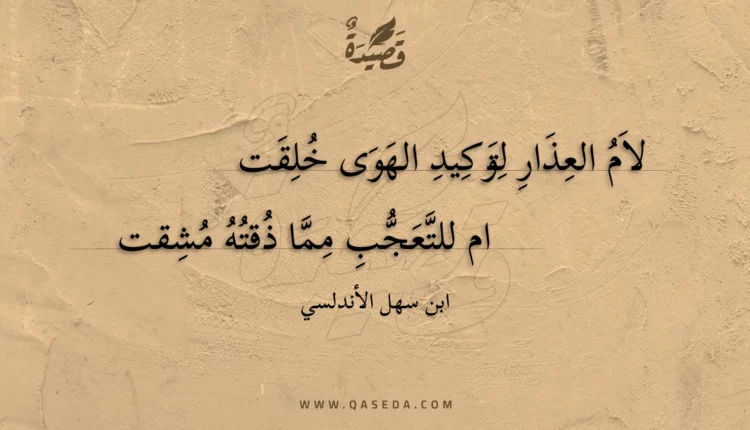 قَصِيدَةٌ
لاَمُ العِذَارِ لِتَوكِيدِ الهَوَى خُلِقَت
ام للتَّعَجُّبِ مِمَّا ذُقتُهُ مُشِقت
ابن سهل الأندلسي
WWW.QASEDA.COM